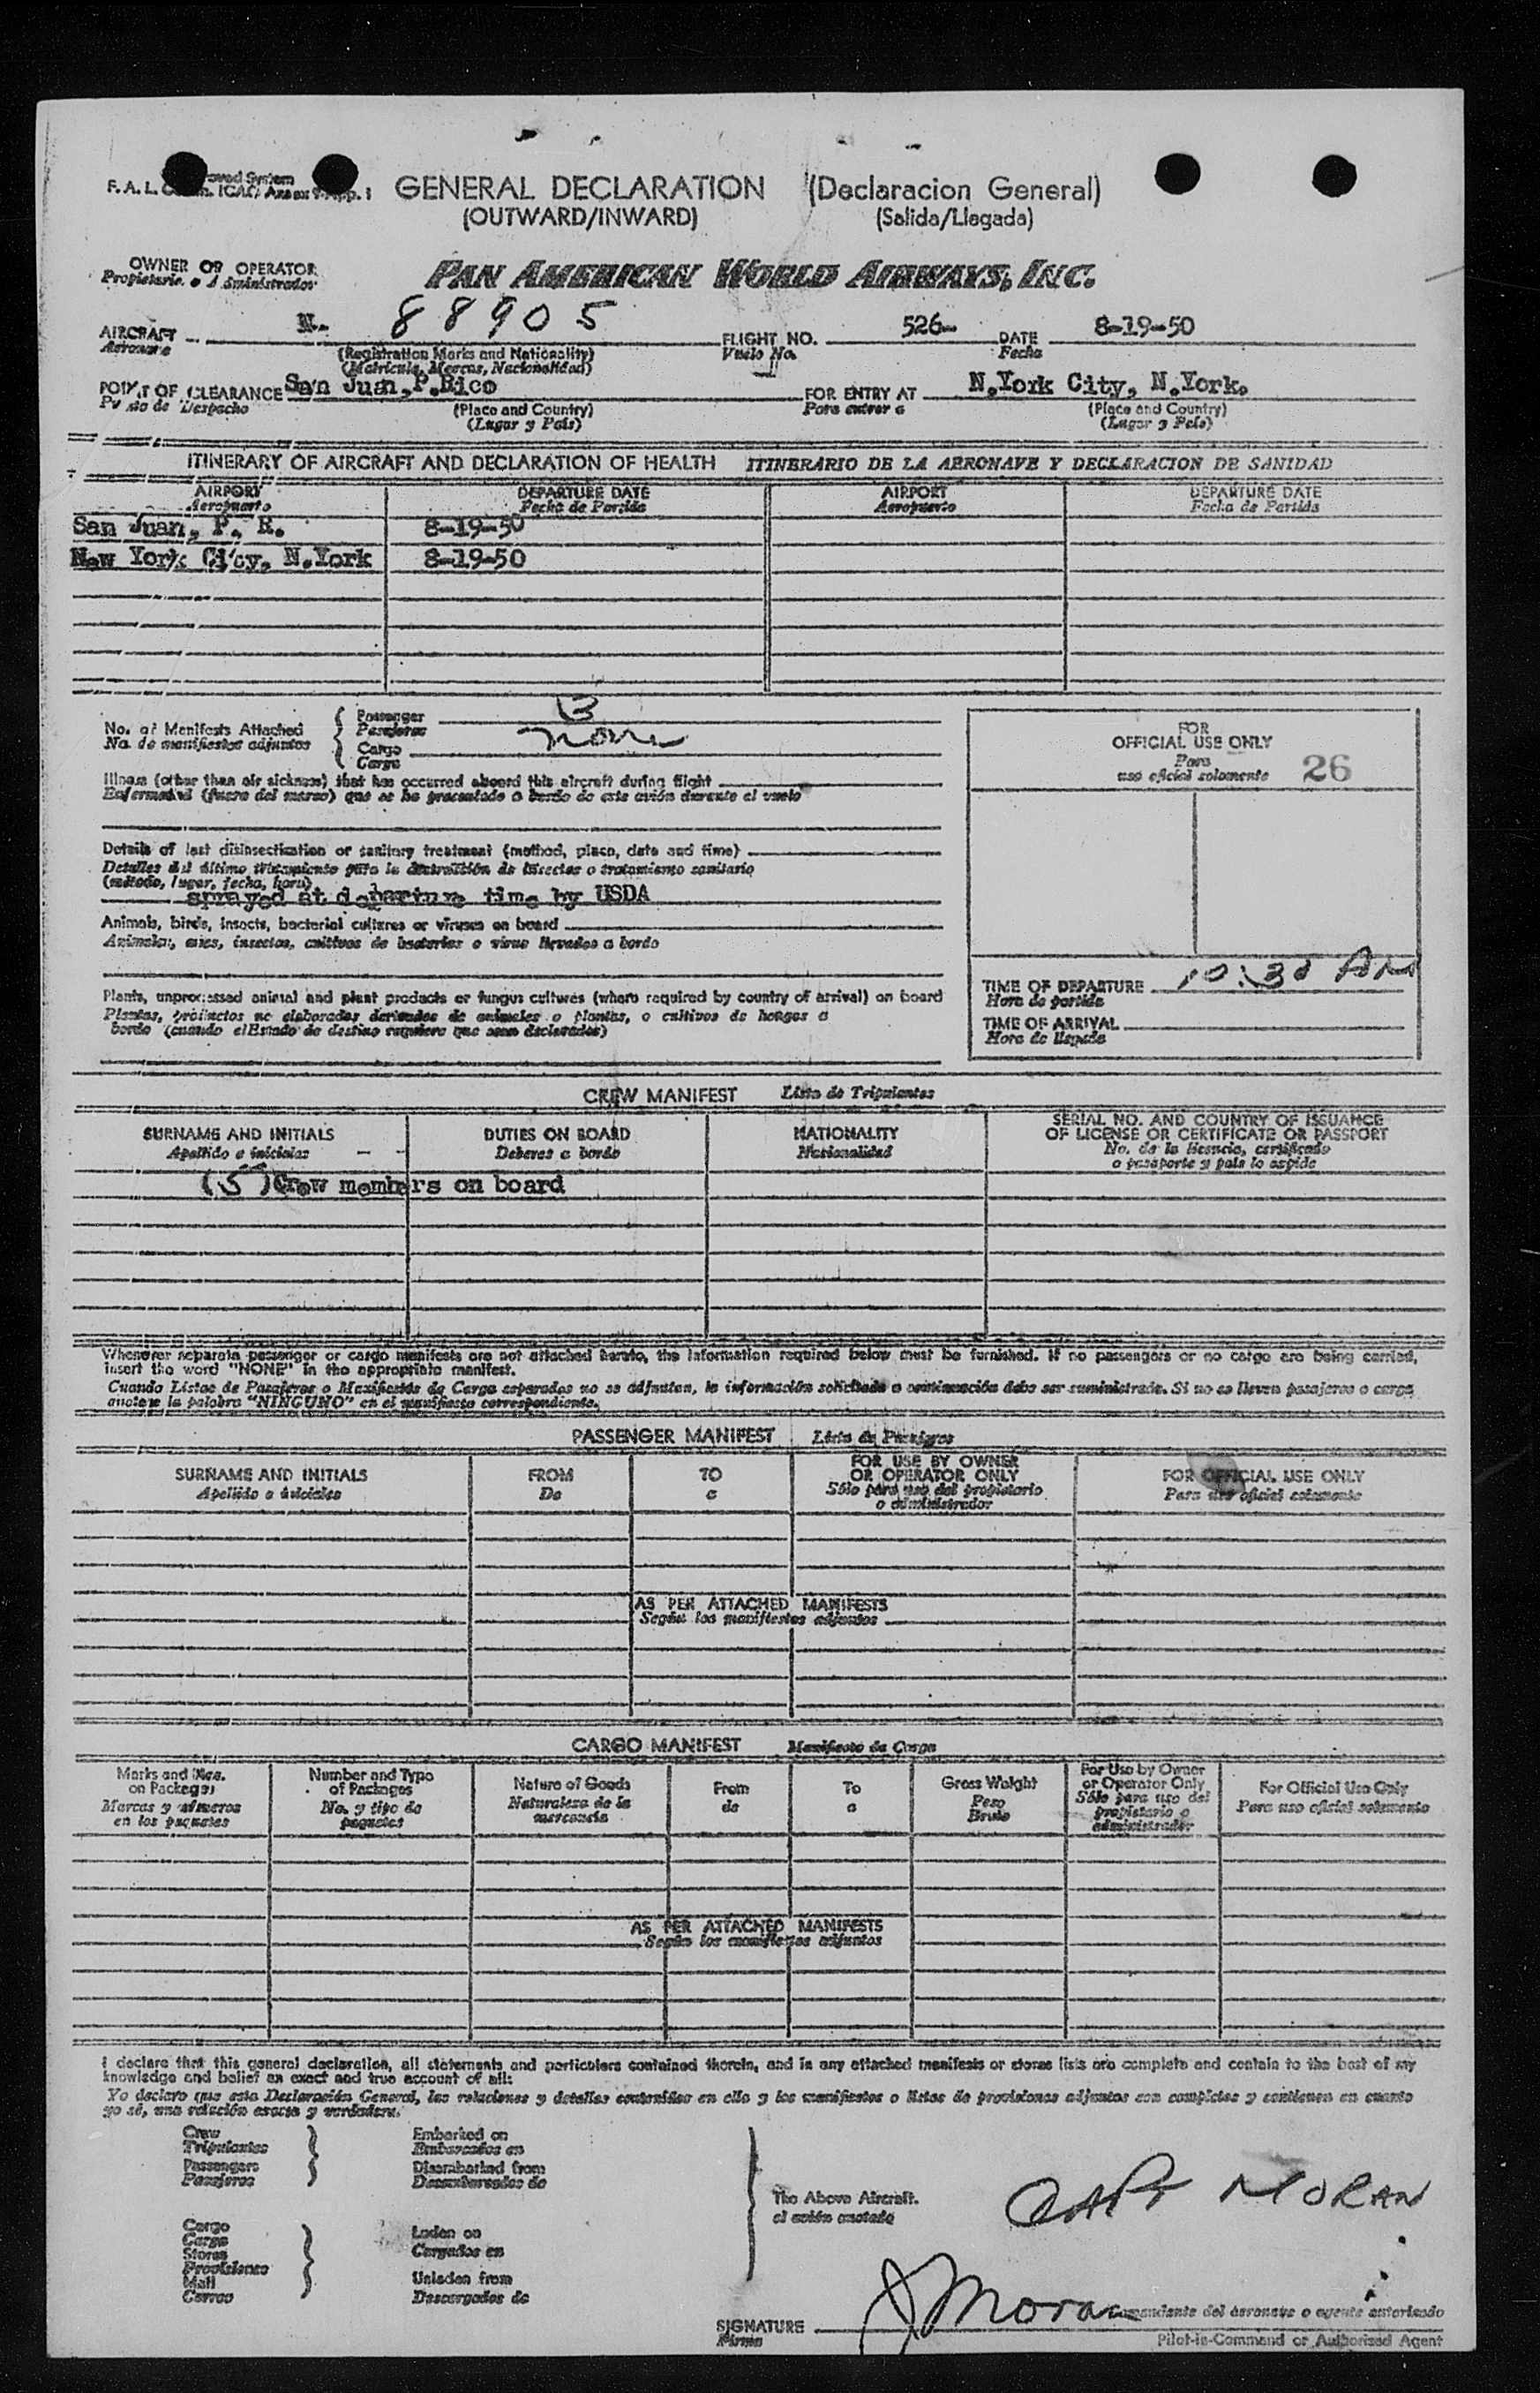 F. A. L. ICAO Annex 9 App. 1
GENERAL DECLARATION (Declaracion General)
(OUTWARD/INWARD) (Salida/Llegada)
OWNER OR OPERATOR
Propietario o Administrador
PAN AMERICAN WORLD AIRWAYS, INC.
AIRCRAFT N- 88905 FLIGHT NO. 526- DATE 8-19-50
Aeronave (Registration Marks and Nationality) Vuelo No. Fecha
(Matricula, Marcas, Nacionalidad)
POINT OF CLEARANCE San Juan, P.Rico FOR ENTRY AT N.York City, N.York.
Punto de Despacho (Place and Country) Para entrar a (Place and Country)
(Lugar y Pais) (Lugar y Pais)
ITINERARY OF AIRCRAFT AND DECLARATION OF HEALTH ITINERARIO DE LA AERONAVE Y DECLARACION DE SANIDAD
AIRPORT DEPARTURE DATE AIRPORT DEPARTURE DATE
Aeropuerto Fecha de Partida Aeropuerto Fecha de Partida
San Juan, P. R. 8-19-50
New York City, N.York 8-19-50
No. of Manifests Attached Passenger
No. de manifiestos adjuntos Pasajeros
Cargo none
Carga
FOR
OFFICIAL USE ONLY
Para
uso oficial solamente 26
Illness (other than air sickness) that has occurred aboard this aircraft during flight
Enfermedad (fuera del mareo) que se ha presentado a bordo de este avión durante el vuelo
Details of last disinsectization or sanitary treatment (method, place, date and time)
Detalles del último tratamiento para la destrucción de insectos o tratamiento sanitario
(método, lugar, fecha, hora)
sprayed at departure time by USDA
Animals, birds, insects, bacterial cultures or viruses on board
Animales, aves, insectos, cultivos de bacterias o virus llevados a bordo
Plants, unprocessed animal and plant products or fungus cultures (where required by country of arrival) on board
Plantas, productos no elaborados derivados de animales o plantas, o cultivos de hongos a
bordo (cuando el Estado de destino requiere que sean declarados)
TIME OF DEPARTURE 10:30 AM
Hora de partida
TIME OF ARRIVAL
Hora de llegada
CREW MANIFEST Lista de Tripulantes
SURNAME AND INITIALS DUTIES ON BOARD NATIONALITY SERIAL NO. AND COUNTRY OF ISSUANCE
OF LICENSE OR CERTIFICATE OR PASSPORT
Apellido e iniciales Deberes a bordo Nacionalidad No. de la licencia, certificado
o pasaporte y pais lo expide
(5) Crew members on board
Whenever separate passenger or cargo manifests are not attached hereto, the information required below must be furnished. If no passengers or no cargo are being carried,
insert the word "NONE" in the appropriate manifest.
Cuando Listas de Pasajeros o Manifiestos de Carga separados no se adjuntan, la información solicitada a continuación debe ser suministrada. Si no se llevan pasajeros o carga
anotese la palabra "NINGUNO" en el manifiesto correspondiente.
PASSENGER MANIFEST Lista de Pasajeros
SURNAME AND INITIALS FROM TO FOR USE BY OWNER
OR OPERATOR ONLY FOR OFFICIAL USE ONLY
Apellido e iniciales De a Sólo para uso del propietario
o administrador Para uso oficial solamente
AS PER ATTACHED MANIFESTS
Según los manifiestos adjuntos
CARGO MANIFEST Manifiesto de Carga
Marks and Nos.
on Packages
Marcas y números
en los paquetes
Number and Type
of Packages
No. y tipo de
paquetes
Nature of Goods
Naturaleza de la
mercancía
From
de
To
a
Gross Weight
Peso
Bruto
For Use by Owner
or Operator Only
Sólo para uso del
propietario o
administrador
For Official Use Only
Para uso oficial solamente
AS PER ATTACHED MANIFESTS
Según los manifiestos adjuntos
I declare that this general declaration, all statements and particulars contained therein, and in any attached manifests or stores lists are complete and contain to the best of my
knowledge and belief an exact and true account of all:
Yo declaro que esta Declaración General, las relaciones y detalles contenidos en ella y los manifiestos o listas de provisiones adjuntos son completos y contienen en cuanto
yo sé, una relación exacta y verdadera.
Crew Embarked on
Tripulantes Embarcados en
Passengers Disembarked from
Pasajeros Desembarcados de
The Above Aircraft.
el avión anotado
CAPT MORAN
Cargo
Carga
Stores
Provisiones
Mail
Correo
Laden on
Cargados en
Unladen from
Descargados de
SIGNATURE J Moran Comandante del aeronave o agente autorizado
Firma Pilot-in-Command or Authorised Agent